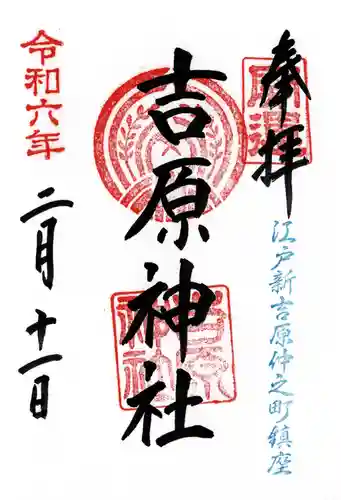 奉拝
江戸新吉原仲之町鎮座
吉原神社
令和六年
二月十一日